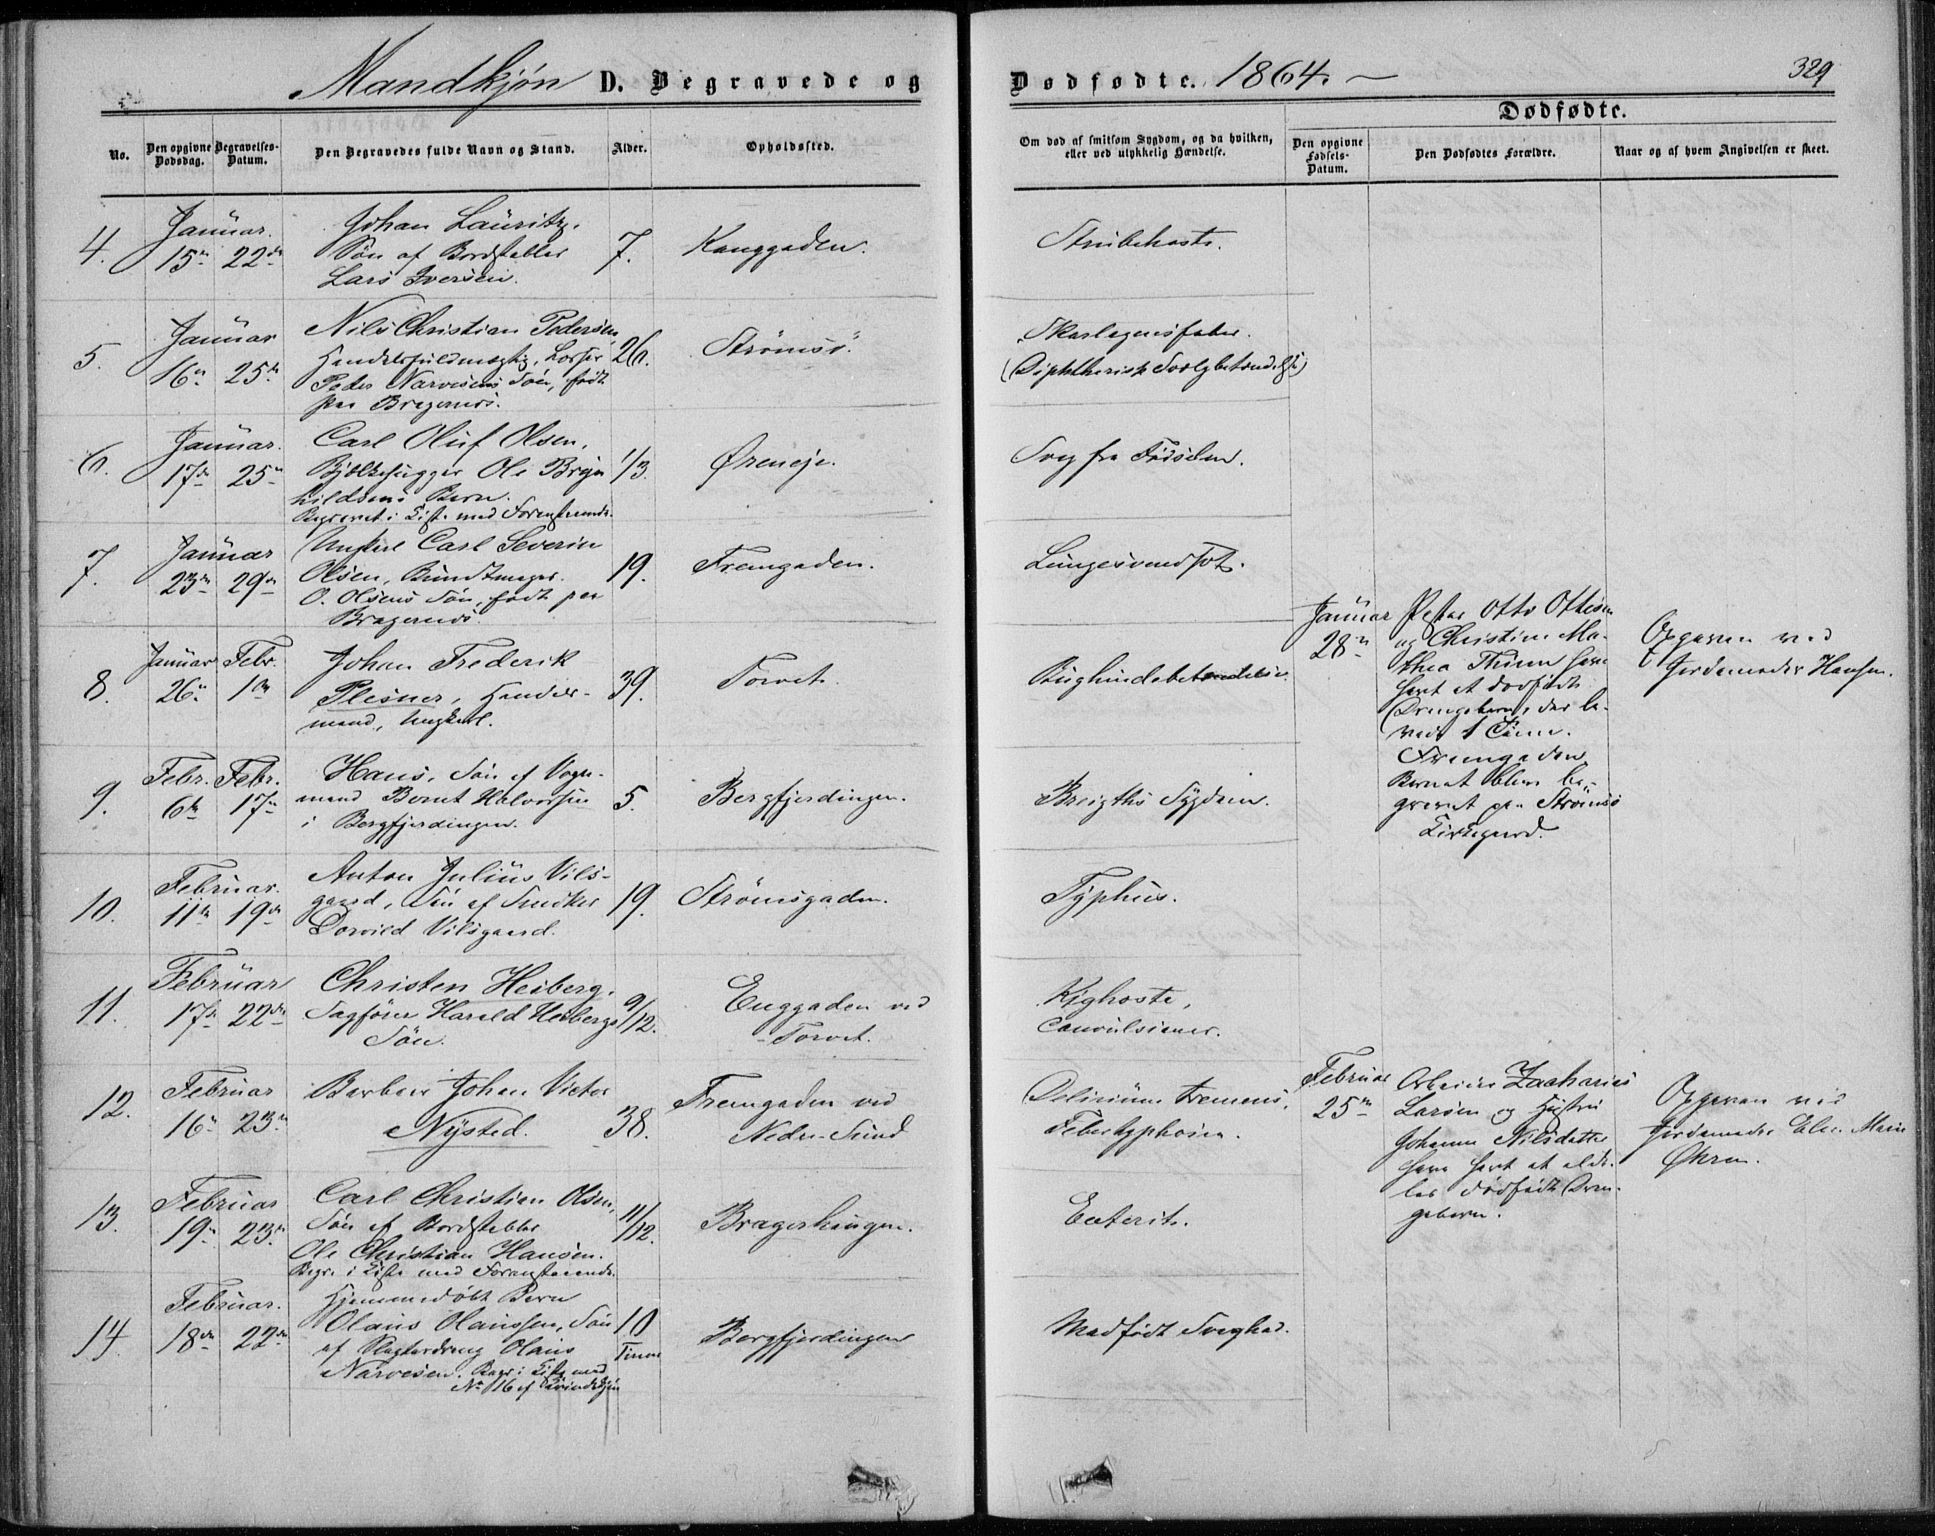 Mandkjøn D. Begravede og
Dødfødte. 1864. —
329
No.
Den opgivne Dødsdag.
Begravelses-Datum.
Den Begravedes fulde Navn og Stand.
Alder.
Opholdssted.
Om død af smitsom Sygdom, og da hvilken, eller ved ulykkelig Hændelse.
Dødfødte.
Den opgivne Fødsels-Datum.
Den Dødfødtes Forældre.
Naar og af hvem Angivelsen er skeet.
4.
Januar.
15de 22de
Johan Lauritz,
Søn af Bordstabler
Lars Iversen.
7.
Konggaden.
Strubehoste.
5.
Januar
16de 25de
Nils Christian Pedersen
Handelsfuldmægtig, Losser
Peder Narvesens Søn, født
paa Bragernæs.
26.
Strømsø.
Skarlagensfeber.
(Diphtherisk Svælgbetændelse)
6.
Januar.
17de 25de
Carl Oluf Olsen,
Bjelkehugger Ole Bryn
hildsens Barn.
Begravet i Kiste med Foranstaaende.
1/3.
Øreneje.
Svag fra Fødselen.
7.
Januar
23de 29de
Ungkarl Carl Severin
Olsen, Bundtmager
O. Olsens Søn, født paa
Bragernæs.
19.
Fremgaden.
Lungesvindsot.
8.
Januar Febr.
26de 1ste
Johan Frederik
Plesner, Handels-
mand, Ungkarl.
39.
Torvet.
Bughindebetændelse.
Januar
28de
Peter Otto Ottesen
og Christine Ma-
thea Thrine have
havt et dødfødt
Drengebarn, der le-
vede 1 Time.
Fremgaden
Barnet blev be-
gravet paa Strømsø
Kirkegaard.
Opgaven ved
Jordemoder Hansen.
9.
Febr. Febr.
6te 17de
Hans, Søn af Vogn-
mand Bernt Halvorsen
i Bergfjerdingen.
5.
Bergfjerdingen.
Breigths Sygdom.
10.
Februar.
11te 19de
Anton Julius Vils-
gaard, Søn af Snedker
Vilsgaard.
19.
Strømsgaden.
Typhus.
11.
Februar
17de 22de
Christen Heiberg,
Sagfører Harald Heibergs
Søn.
9/12.
Enggaden ved
Torvet.
Kighoste,
Convulsioner.
12.
Februar
16de 23de
Barbeer Johan Victor
Nysted.
38.
Fremgaden ved
Nedre-Sund
Delirium tremens,
Febertyphosa.
Februar
25de
Arbeider Zacharias
Larsen og Hustru
Johanne Nilsdatter
have havt et alde-
les dødfødt Dren-
gebarn.
Opgaven ved
Jordemoder Elen Marie
Økern.
13.
Februar
19de 23de
Carl Christian Olsen,
Søn af Bordstabler
Ole Christian Hansen.
Begr. i Kiste med Foranstaaende.
11/12.
Bragerhaugen.
Enterit.
14.
Februar.
18de 22de
Hjemmedøbt Barn
Olaus Olaussen, Søn
af Slagterdreng Olaus
Narvesen. Begr. i Kiste med
No 16 af Kvindekjøn
10
Timer
Bergfjerdingen
Medfødt Svaghed.